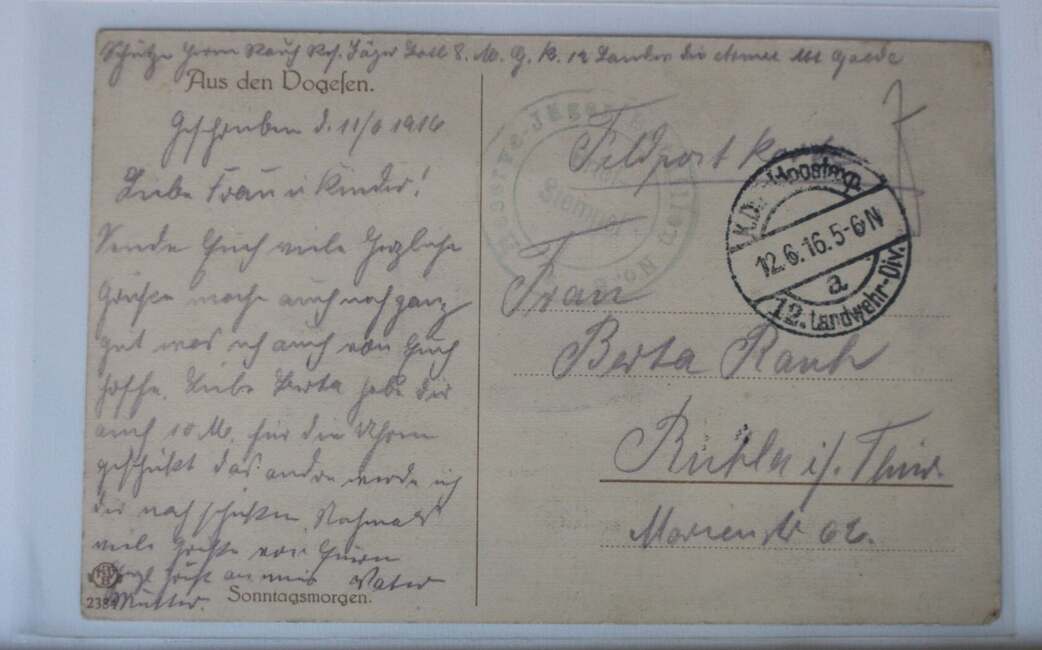 Schütze Herm Rauch Res. Jäger Batl 8. M. G. K. 12 Landw div Armee Gaede
Aus den Vogesen.
Geschrieben d. 11/6 1916
Liebe Frau u Kinder!
Sende Euch viele Herzliche
Grüße mache auch noch ganz
gut was ich auch von Euch
hoffe. Liebe Berta habe dir
auch 10 M. für die Uhren
geschickt das andre werde ich
dir noch schicken. Nochmals
viele Grüße von Euern
Vater
Mutter.
2384
Sonntagsmorgen.
Reserve-Jäger-Bataillon No.
Feldpost Karte
K.D. Feldpostexp.
12.6.16.5-6N
a
12. Landwehr-Div.
Frau
Berta Rauch
Ruhla i/ Thür.